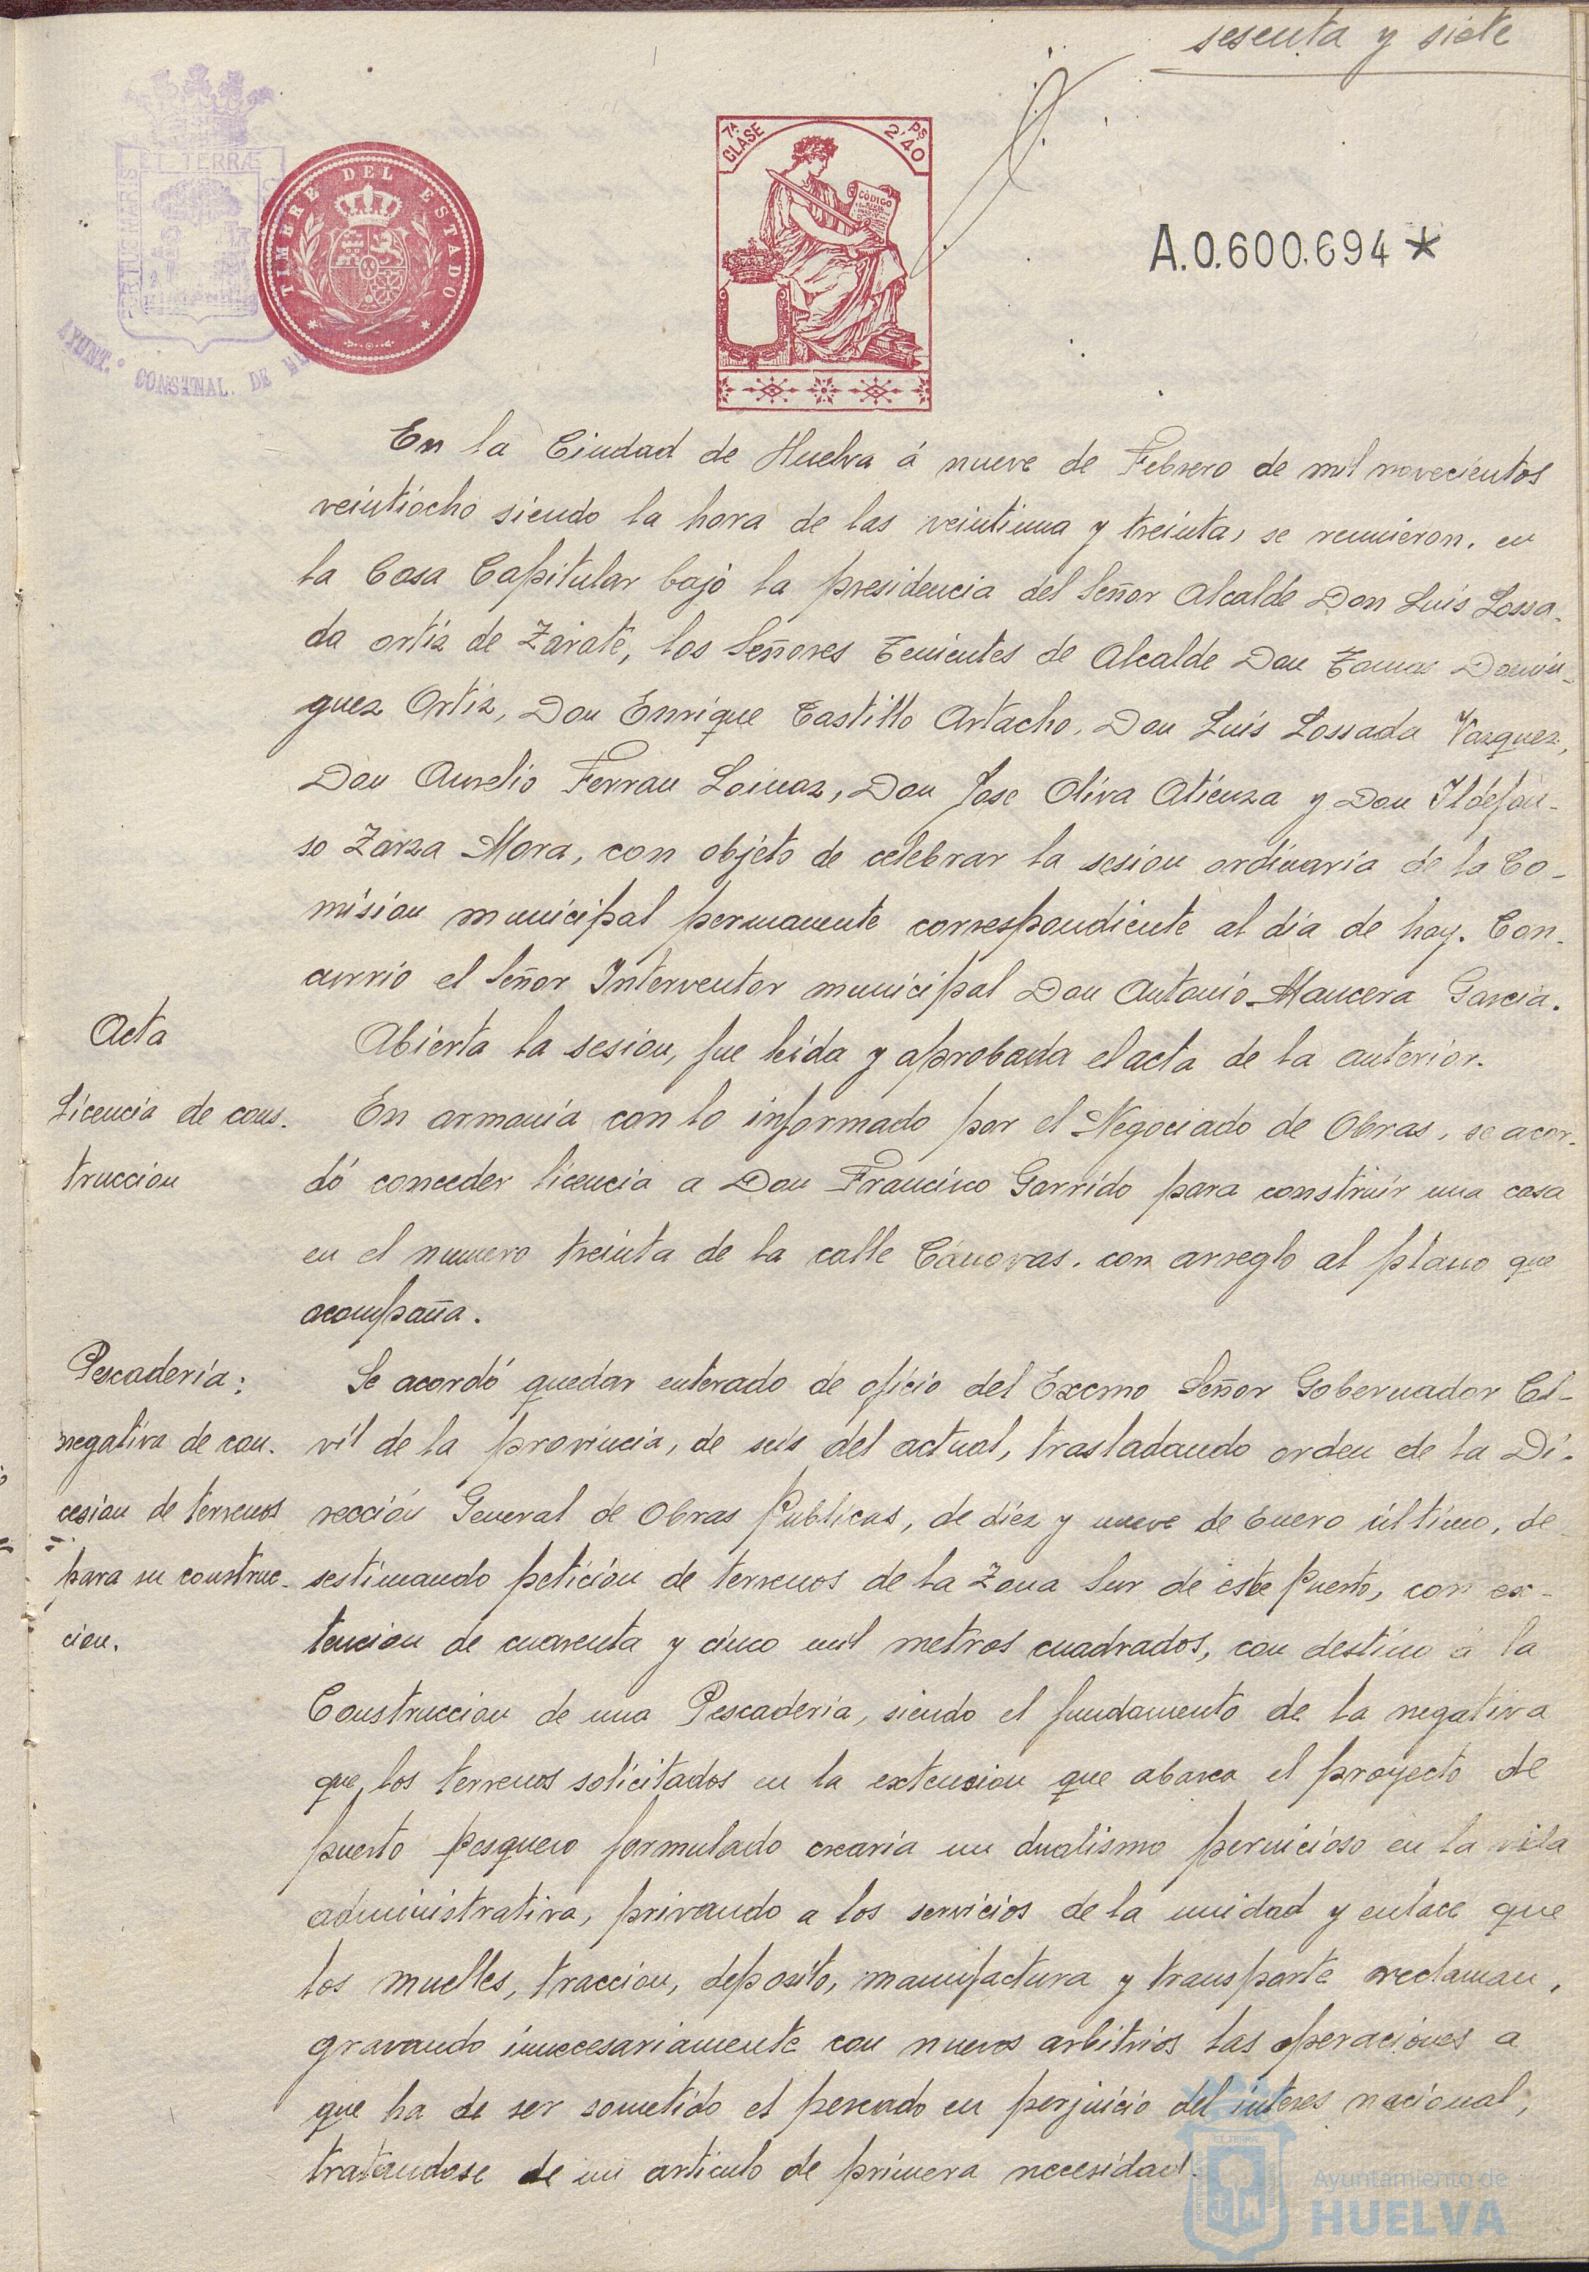 sesenta y siete
ET TERRÆ
PORTUS MARIS
AYUNT.º CONSTNAL. DE
TIMBRE DEL ESTADO
7ª CLASE
Pts 2'40
CODIGO
A.0.600.694*
En la Ciudad de Huelva á nueve de Febrero de mil novecientos
veintiocho siendo la hora de las veintiuna y treinta, se reunieron, en
la Casa Capitular bajo la presidencia del Señor Alcalde Don Luis Lossa-
da ortiz de Zárate, los Señores Tenientes de Alcalde Don Tomas Domín-
guez Ortiz, Don Enrique Castillo Artacho, Don Luis Lossada Vazquez,
Don Aurelio Ferran Loinaz, Don Jose Oliva Atienza y Don Ildefon-
so Zarza Mora, con objeto de celebrar la sesion ordinaria de la Co-
mision municipal permanente correspondiente al dia de hoy. Con-
currió el Señor Interventor municipal Don Antonio Mancera Garcia.
Acta
Abierta la sesion, fue leida y aprobada el acta de la anterior.
Licencia de cons-
truccion
En armonia con lo informado por el Negociado de Obras, se acor-
dó conceder licencia a Don Francisco Garrido para construir una casa
en el numero treinta de la calle Cánovas, con arreglo al plano que
acompaña.
Pescaderia:
negativa de con-
cesion de terrenos
para su construc-
cion.
Se acordó quedar enterado de oficio del Excmo Señor Gobernador Ci-
vil de la provincia, de seis del actual, trasladando orden de la Di-
rección General de Obras Publicas, de diez y nueve de Enero último, de-
sestimando petición de terrenos de la Zona Sur de este Puerto, con ex-
tencion de cuarenta y cinco mil metros cuadrados, con destino á la
Construccion de una Pescaderia, siendo el fundamento de la negativa
que, los terrenos solicitados en la extension que abarca el proyecto de
puerto pesquero formulado crearia un dualismo pernicioso en la vida
administrativa, privando a los servicios de la unidad y enlace que
los muelles, traccion, deposito, manufactura y transporte reclaman,
gravando innecesariamente con nuevos arbitrios las operaciones a
que ha de ser sometido el pescado en perjuicio del interes nacional,
tratandose de un articulo de primera necesidad.
Ayuntamiento de
HUELVA